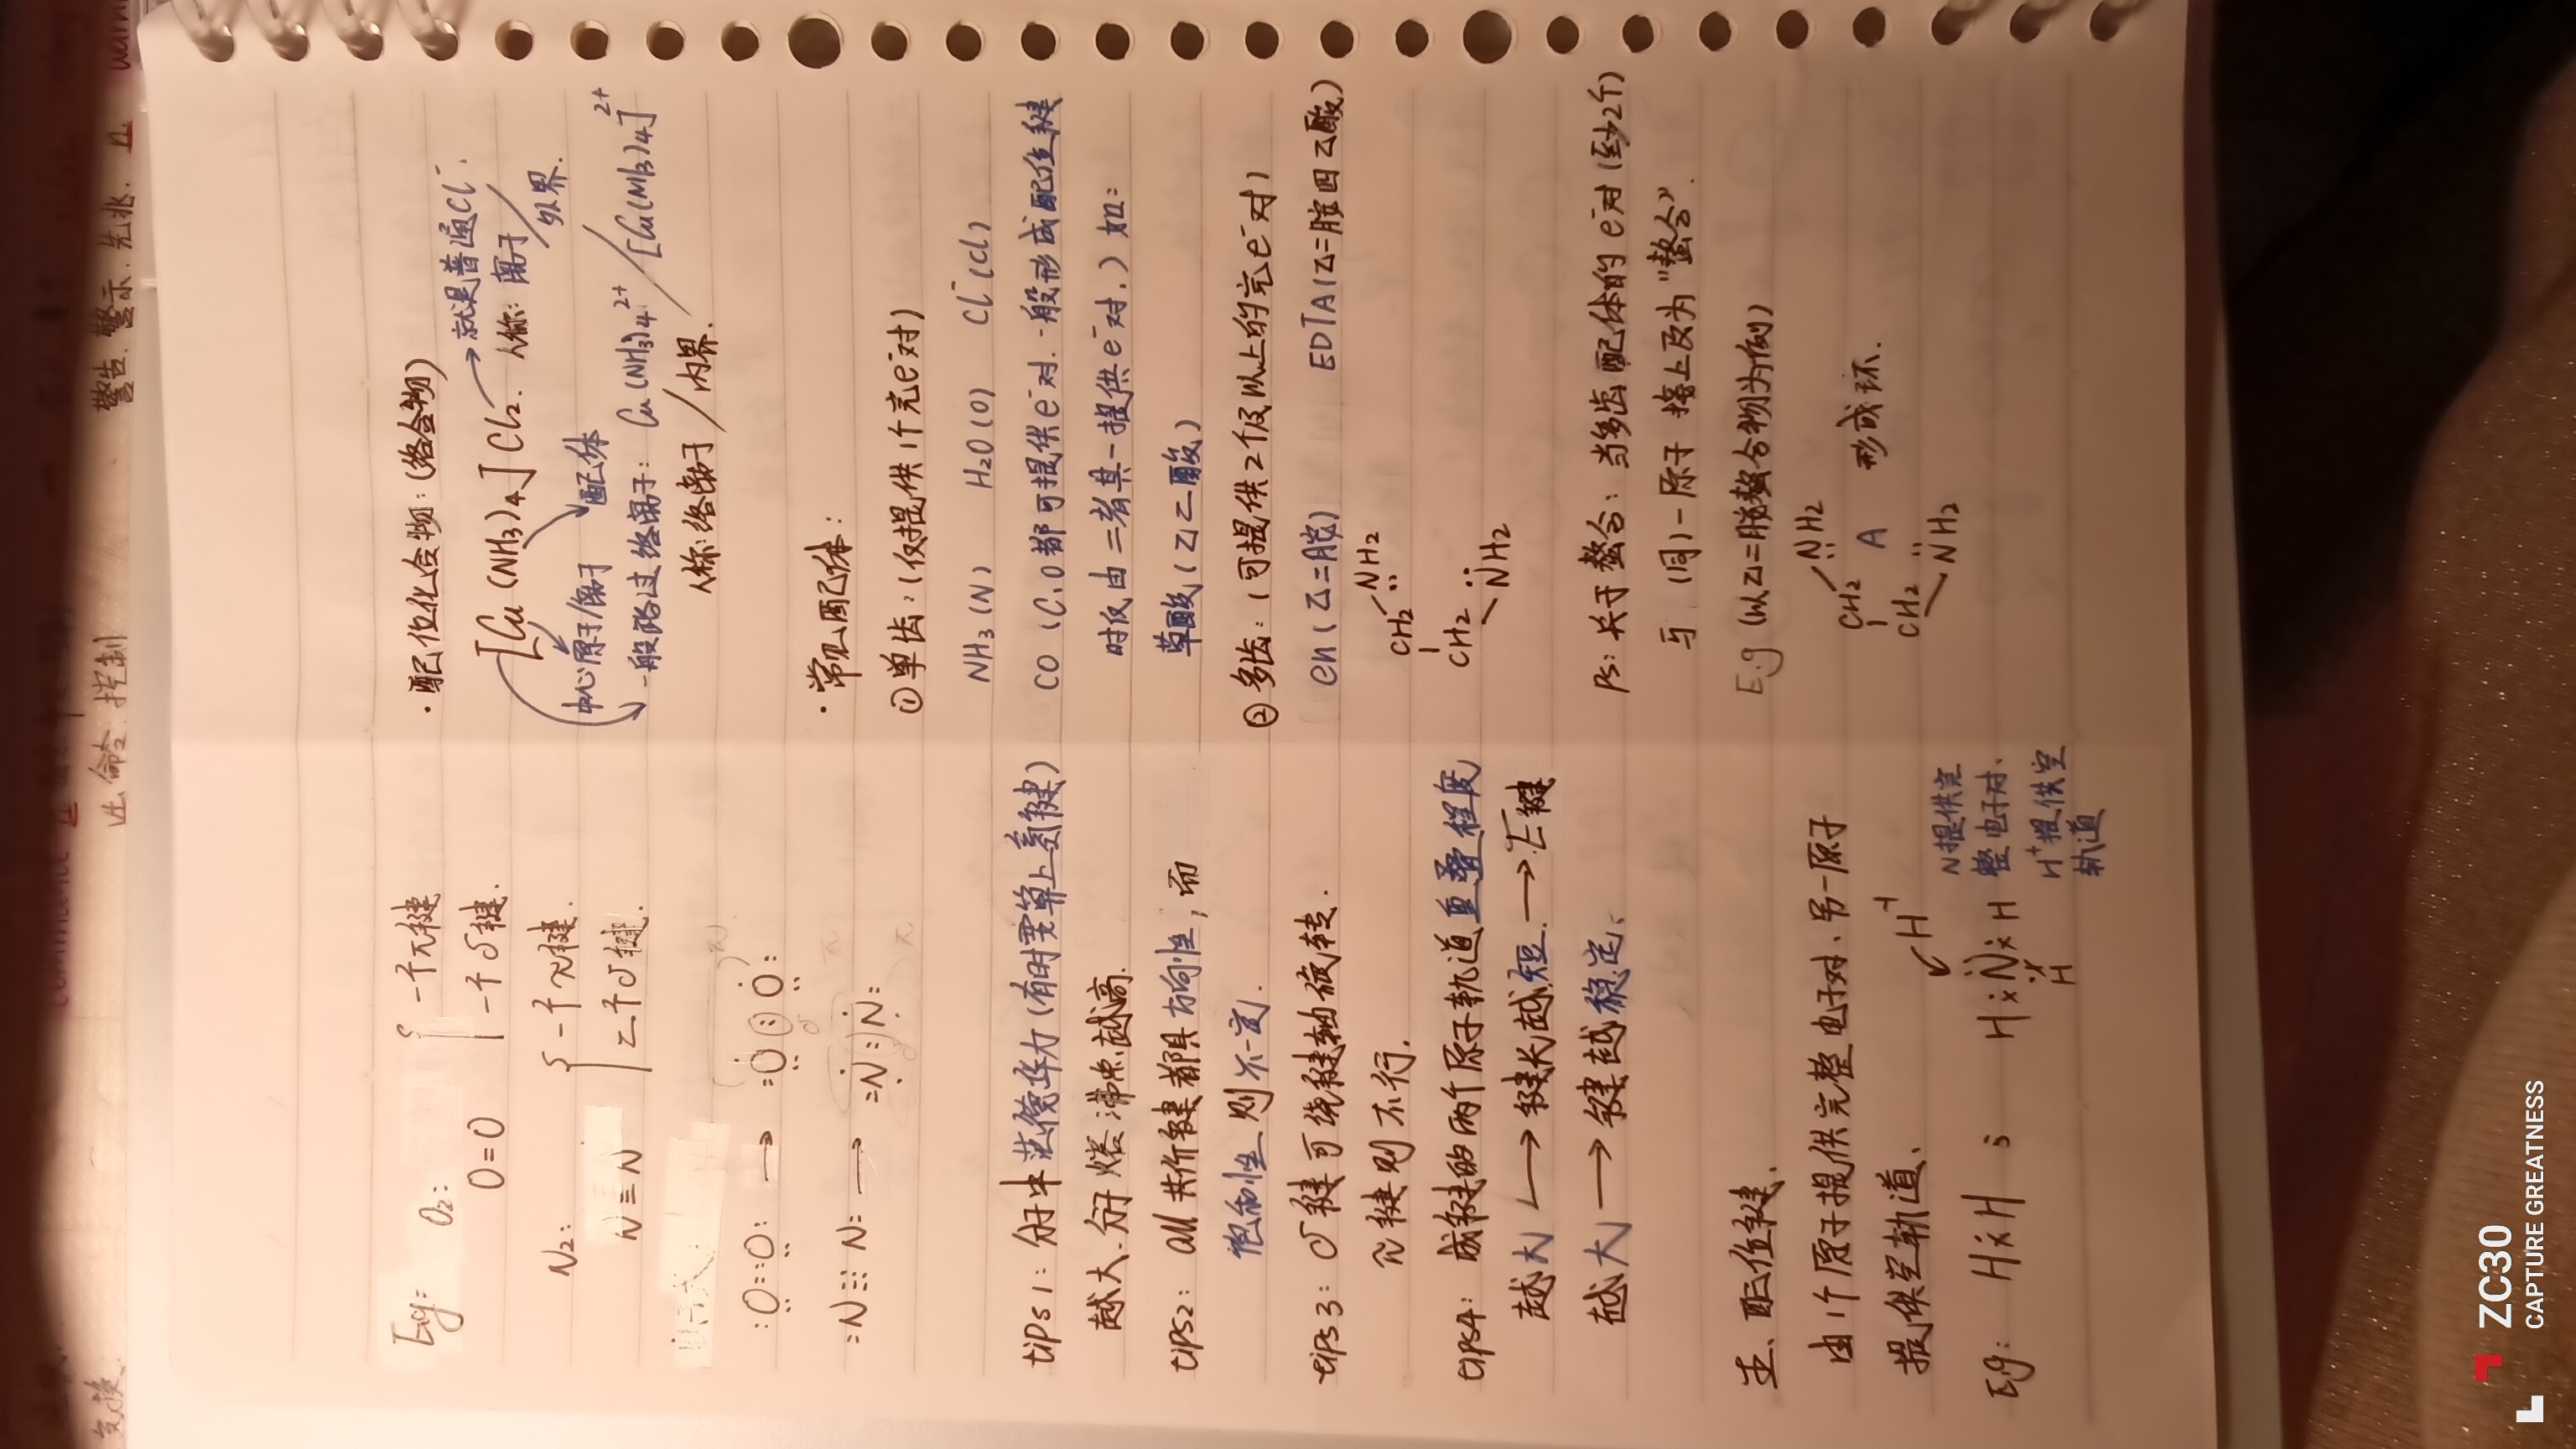 Eg: O₂: 一个π键
O=O 一个σ键.
N₂: 一个π键.
N≡N 二个σ键.
:O::O: → :O:O:
:N:::N: → :N:N:
tips1: 分子中范德华力(有时需算上氢键)
越大.分子熔沸点越高.
tips2: all 共价键都具方向性,而
饱和性则不一定.
tips3: σ键可绕键轴旋转.
π键则不行.
tips4: 成键的两个原子轨道重叠程度
越大 → 键长越短. → 键
越大 → 键越稳定、
五、配位键.
由1个原子提供完整电子对、另一原子
提供空轨道、
Eg: H
N提供完
整电子对、
H⁺提供空
轨道
·配位化合物:(络合物)
→就是普通Cl⁻.
[Cu(NH₃)₄]Cl₂. 人称:离子/外界.
中心原子/离子 配体
一般略过络离子: Cu(NH₃)₄²⁺/[Cu(NH₃)₄]²⁺
人称:络离子/内界.
·常见配体:
①单齿:(仅提供1个完e⁻对)
NH₃(N) H₂O(O) Cl⁻(Cl)
CO (C、O都可提供e⁻对.一般形成配位键
时仅由二者其一提供e⁻对.)如:
草酸(乙二酸)
②多齿:(可提供2个及以上的完e⁻对)
en(乙二胺) EDTA(乙二胺四乙酸)
CH₂ NH₂
CH₂ NH₂
Ps:关于螯合:当多齿配体的e⁻对(至少2个)
与(同)一原子接上及为"螯合".
E.g (以乙二胺螯合物为例)
CH₂ NH₂
A 形成环.
CH₂ NH₂
警告.警示.先兆.
进.命令.控制
ZC30
CAPTURE GREATNESS